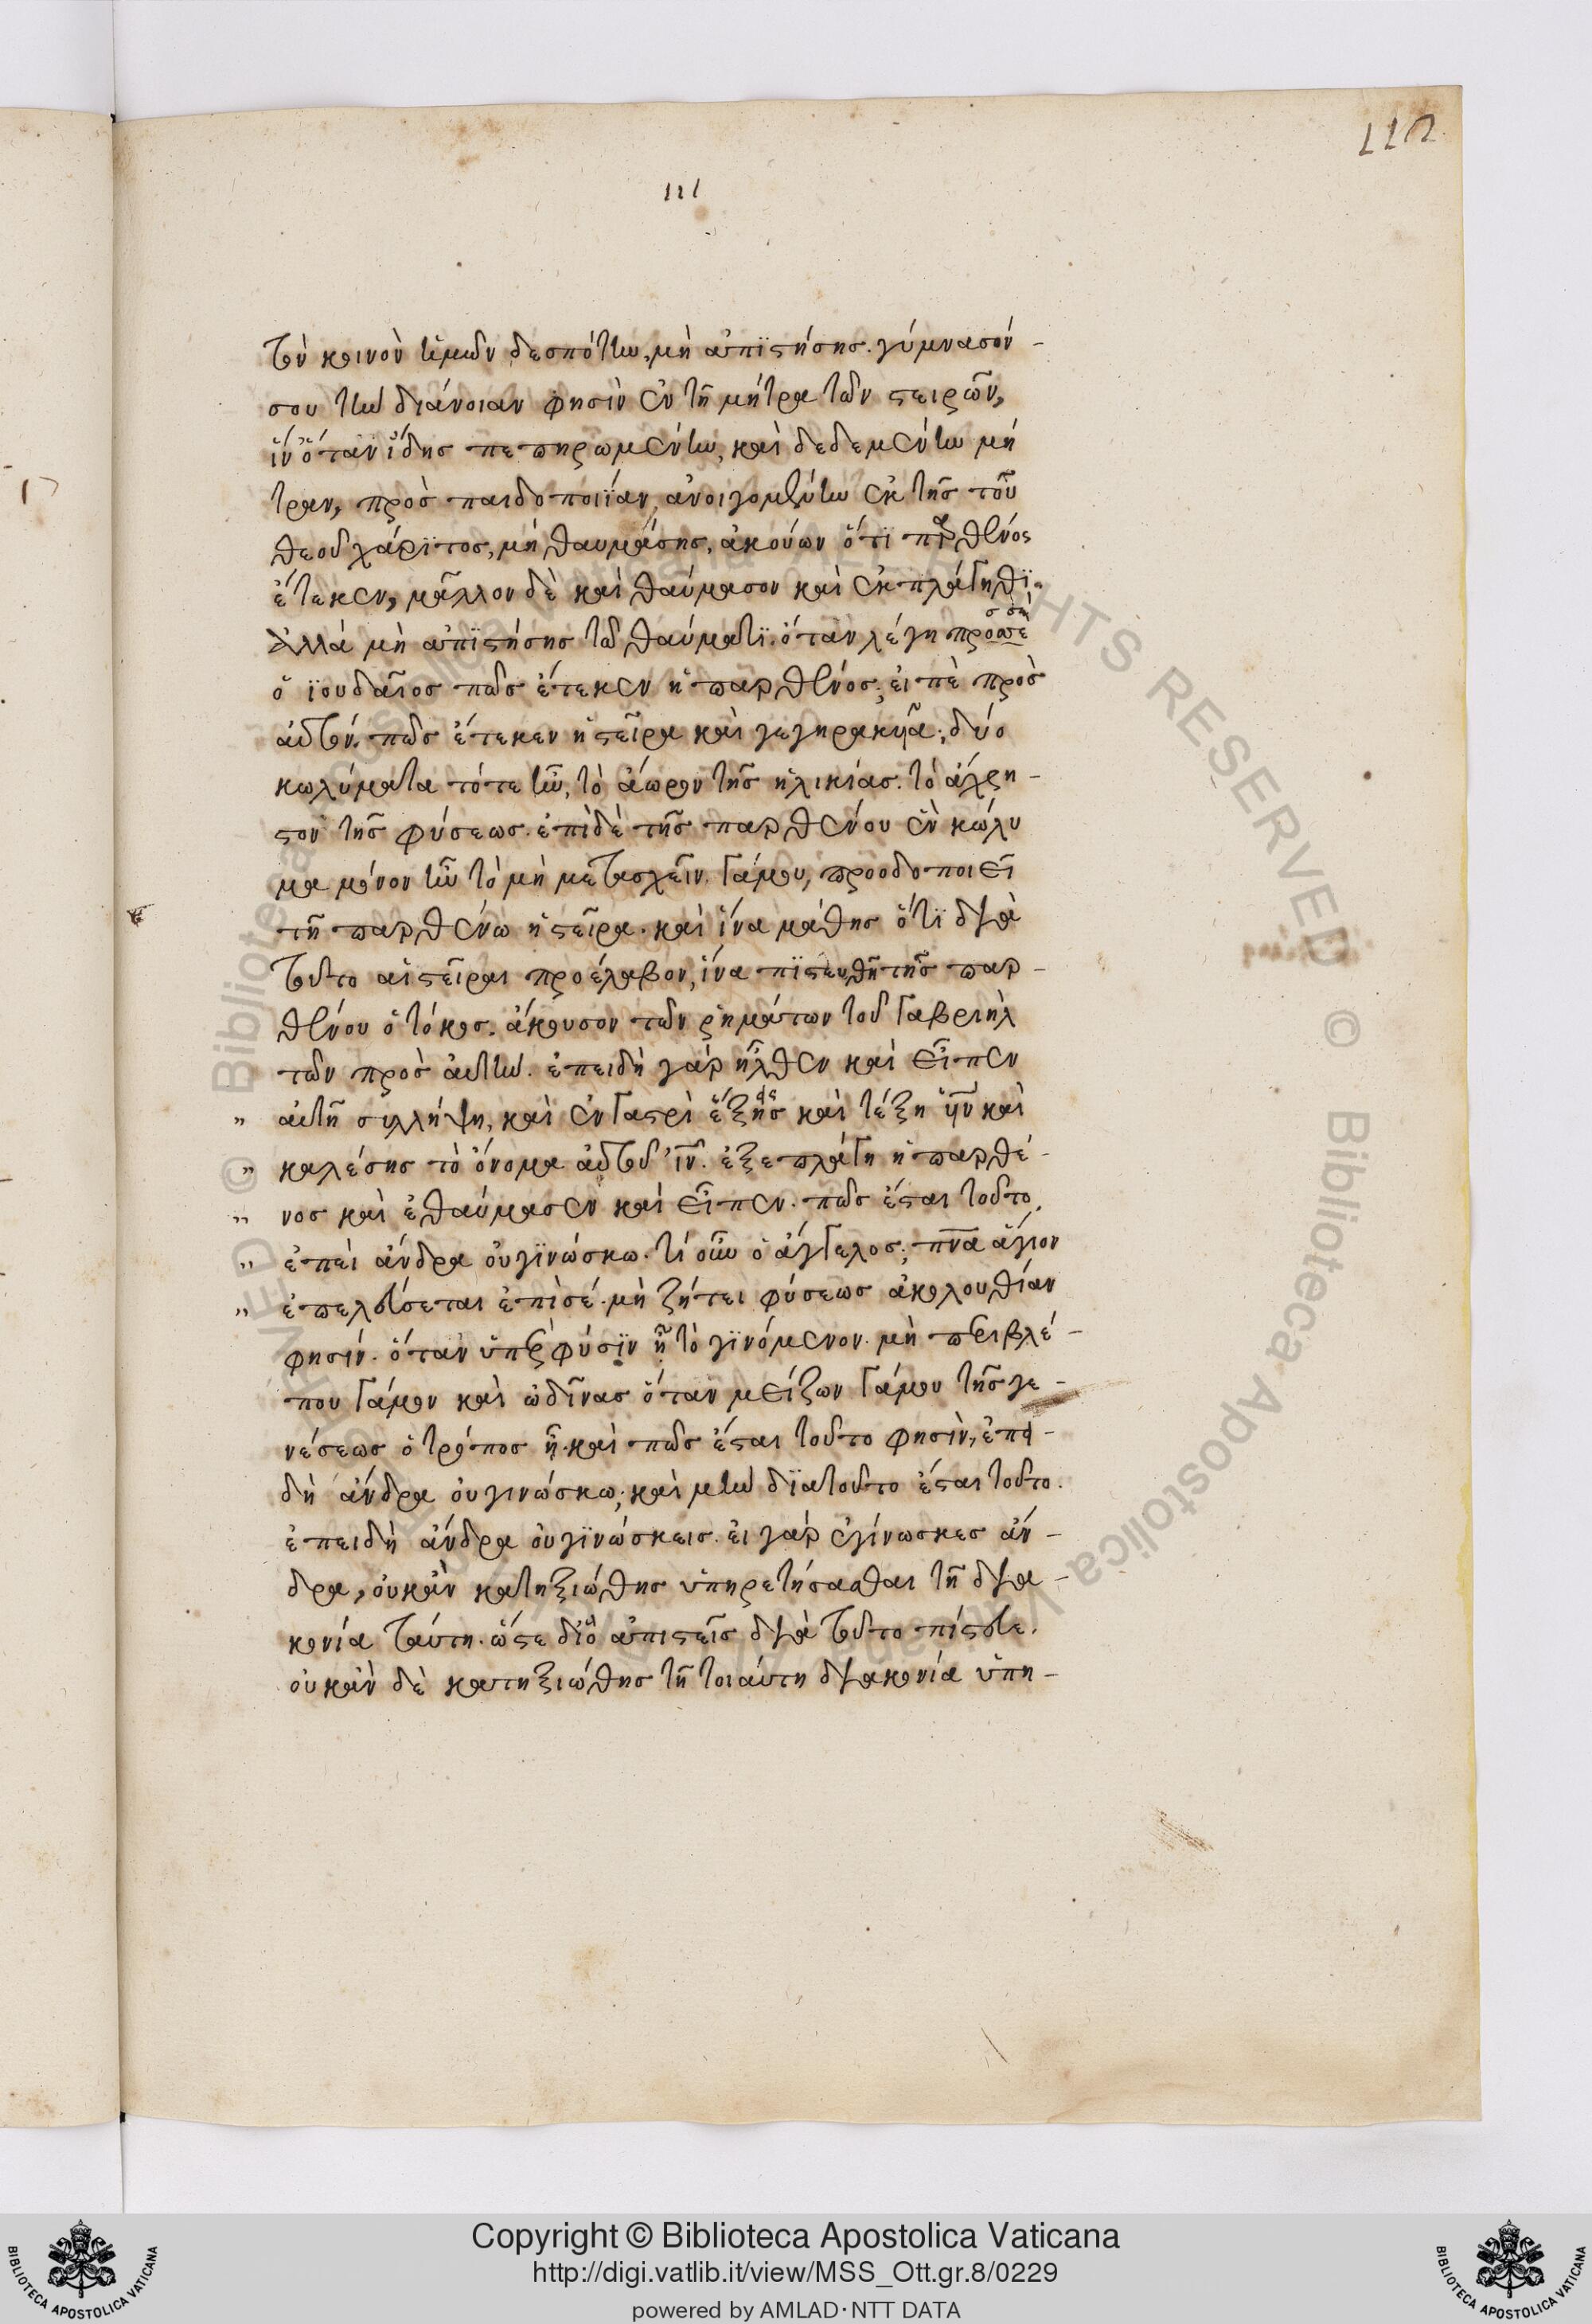 112
111
τὸν κοινὸν ἡμῶν δεσπότην, μὴ ἀπιστήσης. γύμνασόν -
σου τὴν διάνοιαν φησὶν ἐν τῆ μήτρα τῶν στειρῶν,
ἵν' ὅταν ἴδης πεπηρωμένην, καὶ δεδεμένην μή
τραν, πρὸς παιδοποιΐαν ἀνοιγομένην ἐκ τῆς τοῦ
θεοῦ χάριτος, μὴ θαυμάσης, ἀκούων ὅτι παρθένος
ἔτεκεν, μᾶλλον δὲ καὶ θαύμασον καὶ ἐκπλάγηθι.
Ἀλλὰ μὴ ἀπιστήσης τῶ θαύματι. ὅταν λέγη πρὸς σὲ
ὁ ἰουδαῖος πῶς ἔτεκεν ἡ παρθένος; εἰπὲ πρὸς
αὐτόν. πῶς ἔτεκεν ἡ στεῖρα καὶ γεγηρακυῖα; δύο
κωλύματα τότε ἦν, τὸ ἄωρον τῆς ἡλικίας. τὸ ἄχρη -
στον τῆς φύσεως. ἐπὶ δὲ τῆς παρθένου ἓν κώλυ
μα μόνον ἦν τὸ μὴ μετασχεῖν γάμου, προοδοποιεῖ
τῆ παρθένω ἡ στεῖρα. καὶ ἵνα μάθης ὅτι διὰ
τοῦτο αἱ στεῖραι προέλαβον, ἵνα πιστευθῆ τῆς παρ -
θένου ὁ τόκος. ἄκουσον τῶν ῥημάτων τοῦ Γαβριὴλ
τῶν πρὸς αὐτήν. ἐπειδὴ γὰρ ἦλθεν καὶ εἶπεν
" αὐτῆ συλλήψη, καὶ ἐν γαστρὶ ἕξης καὶ τέξη υἱὸν καὶ
" καλέσης τὸ ὄνομα αὐτοῦ ἰν. ἐξεπλάγη ἡ παρθέ -
" νος καὶ ἐθαύμασεν καὶ εἶπεν. πῶς ἔσται τοῦτο,
" ἐπεὶ ἄνδρα οὐ γινώσκω. τί οὖν ὁ ἄγγελος; πνα ἅγιον
" ἐπελεύσεται ἐπὶ σέ. μὴ ζήτει φύσεως ἀκολουθίαν
φησίν. ὅταν ὑπὲρ φύσιν ἦ τὸ γινόμενον. μὴ περιβλέ -
που γάμον καὶ ὠδῖνας ὅταν μείζων γάμου τῆς γε -
νέσεως ὁ τρόπος ἦ. καὶ πῶς ἔσται τοῦτο φησὶν, ἐπει -
δὴ ἄνδρα οὐ γινώσκω; καὶ μὴν διατοῦτο ἔσται τοῦτο.
ἐπειδὴ ἄνδρα οὐ γινώσκεις. εἰ γὰρ ἐγίνωσκες ἄν -
δρα, οὐκ ἂν κατηξιώθης ὑπηρετήσασθαι τῆ δια -
κονία ταύτη. ὥστε δι' ὃ ἀπιστεῖς διὰ τοῦτο πίστευε.
οὐκ ἂν δὲ κατηξιώθης τῆ τοιαύτη διακονία ὑπη -
Copyright © Biblioteca Apostolica Vaticana
http://digi.vatlib.it/view/MSS_Ott.gr.8/0229
powered by AMLAD·NTT DATA